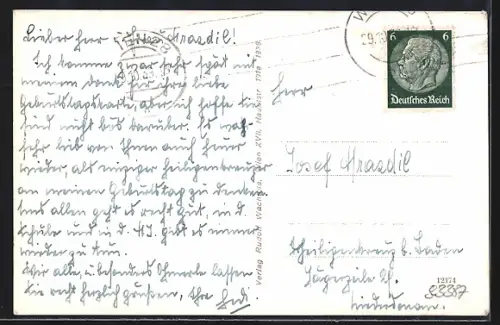 Lieber Herr Strasdil!
Ich komme zwar sehr spät mit
meinem Dank für Ihre liebe
Geburtstagskarte, aber ich hoffe Sie
sind nicht bös darüber. Es war
sehr lieb von Ihnen auch heuer
wieder, als einziger Heiligenkreuzer
an meinen Geburtstag zu denken.
Uns allen geht es recht gut, in d.
Schule und in d. HJ. gibt es immer
wieder zu tun.
Wir alle, u. besonders lassen
Sie recht herzlich grüßen, Ihre Hedi.
Verlag Rudolf Wien XVII,
6 6
Deutsches Reich
Herr
Josef Strasdil
Heiligenkreuz b. Baden
Jägerzeile
Niederdonau.
12374